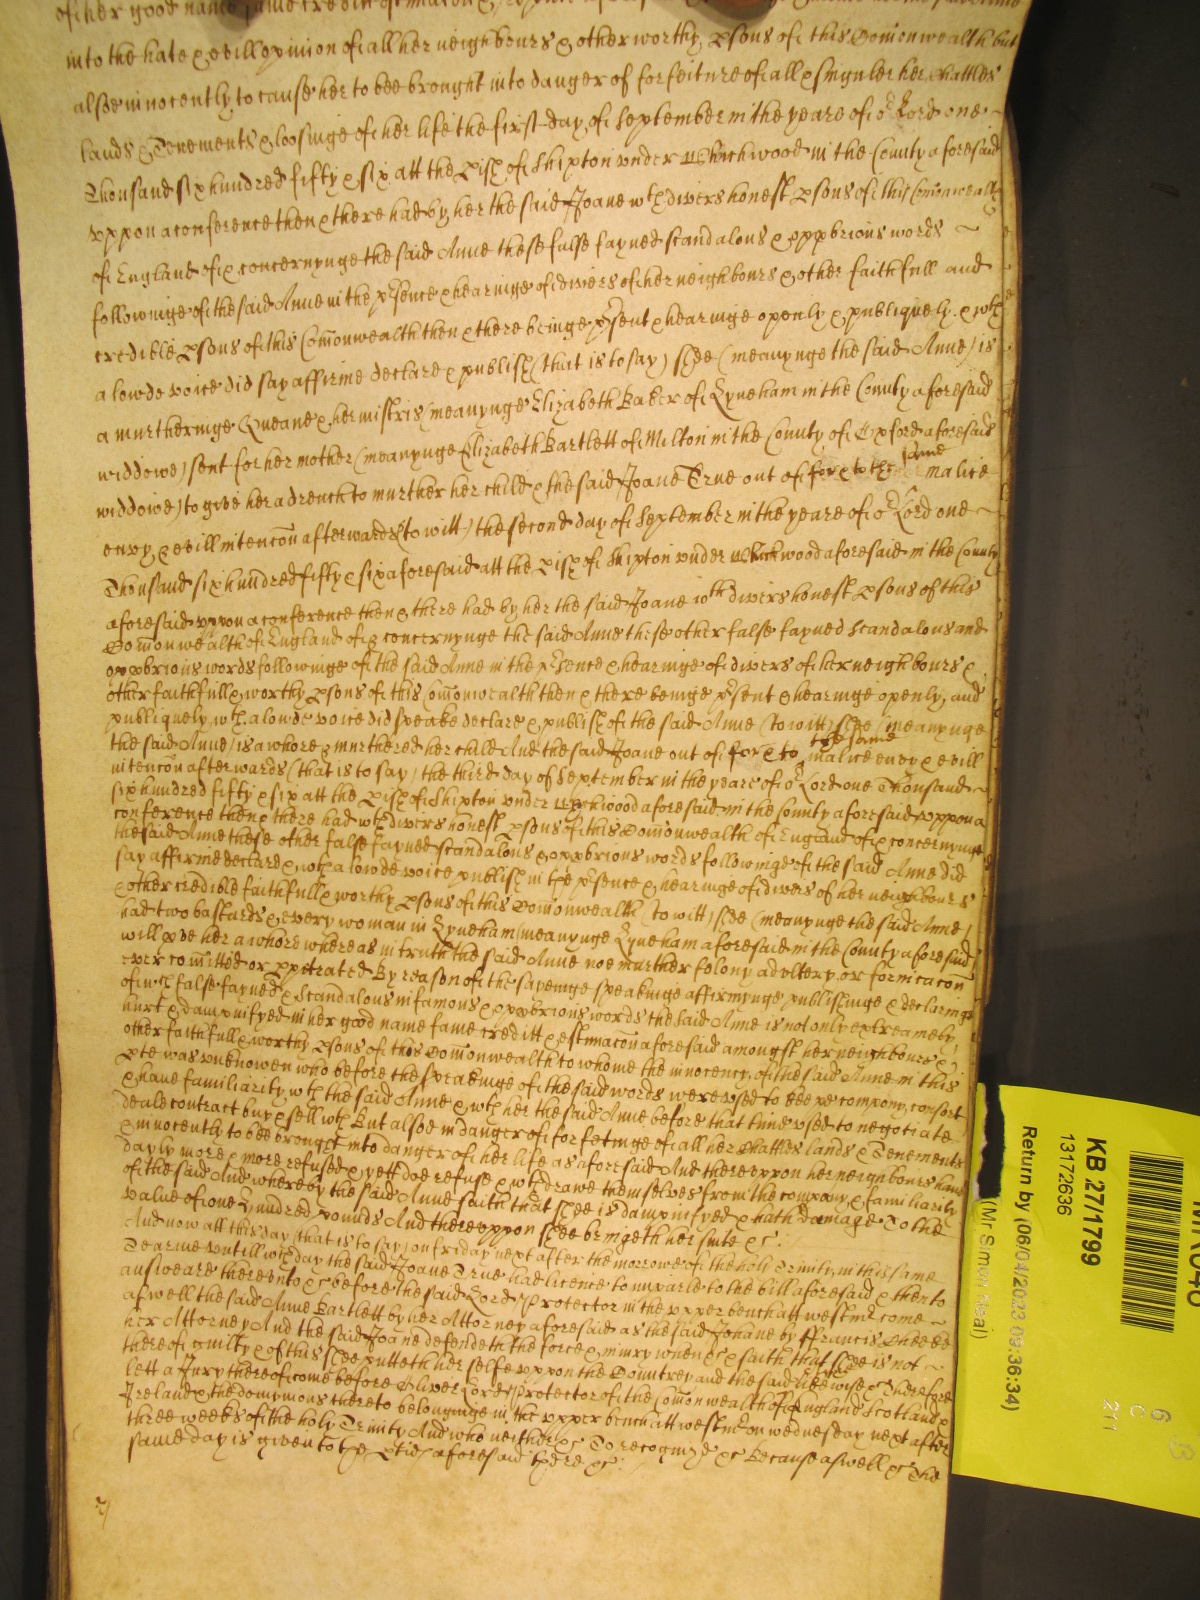 of her good name fame creditt
into the hate & evill opinion of all her neighbours & other worthy psons of this Comonwealth but
alsoe innocently to cause her to bee brought into danger of forfeiture of all & singuler her Chattles
lands & Tenements & loosinge of her life the first day of September in the yeare of or Lord one
Thousand six hundred fifty & six att the pish of Shipton under Whichwood in the County aforesaid
uppon a conference then & there had by her the said Joane wth divers honest psons of this Comonwealth
of England of & concernynge the said Anne these false fayned scandalous & opprbrious words
followinge of the said Anne in the prsence & hearinge of divers of her neighbours & other faithfull and
credible psons of this Comonwealth then & there beinge prsent & hearinge openly & publiquely & wth
a lowde voice did say affirme declare & publish (that is to say) shee (meanynge the said Anne) is
a murtheringe Queane & her mistris (meanynge Elizabeth Baker of Lyneham in the County aforesaid
widdowe) sent for her mother (meanynge Elizabeth Bartlett of Milton in the County of Oxford aforesaid
widdowe) to give her a drench to murther her child & the said Joane True out of for & to the same malice
envy & evill intencon afterwards (to witt) the second day of September in the yeare of or Lord one
Thousand six hundred fifty & six aforesaid att the pish of Shipton under Whichwood aforesaid in the County
aforesaid uppon a conference then & there had by her the said Joane wth divers honest psons of this
Comonwealth of England of & concernynge the said Anne these other false fayned scandalous and
opprbrious words followinge of the said Anne in the prsence & hearinge of divers of her neighbours &
other faithfull & worthy psons of this Comonwealth then & there beinge prsent & hearinge openly and
publiquely wth a lowde voice did speake declare & publish of the said Anne (to witt) shee (meanynge
the said Anne) is a whore & murthered her child And the said Joane out of for & to the same malice envy & evill
intencon afterwards (that is to say) the third day of September in the yeare of or Lord one Thousand
six hundred fifty & six att the pish of Shipton under Whichwood aforesaid in the County aforesaid uppon a
conference then & there had wth divers honest psons of this Comonwealth of England of & concernynge
the said Anne these other false fayned scandalous & opprbrious words followinge of the said Anne did
say affirme declare & wth a lowde voice publish in the prsence & hearinge of divers of her neighbours
& other credible faithfull & worthy psons of this Comonwealth (to witt) shee (meanynge the said Anne)
had two bastards & every woman in Lyneham (meanynge Lyneham aforesaid in the County aforesaid)
will pve her a whore whereas in truth the said Anne noe murther felony adultery or fornicacon
ever comitted or ppetrated By reason of the sayenge speakinge affirmynge publishinge & declaringe
of wch false fayned & scandalous infamous & opprbrious words the said Anne is not only extreamely
hurt & dampnifyed in her good name fame creditt & estimacon aforesaid amongst her neighbours &
other faithfull & worthy psons of this Comonwealth to whome the innocency of the said Anne in this
pte was unknowen who before the speakinge of the said words were used to keepe company consort
& have familiarity wth the said Anne & wth her the said Anne before that time used to negotiate
deale contract buy & sell wth But alsoe in danger of forfetinge of all her Chattles lands & Tenements
& innocently to bee brought into danger of her life as aforesaid And thereuppon her neighbours have
dayly more & more refused & yett doe refuse & wthdrawe themselves from the company & familiarity
of the said And whereby the said Anne saith that shee is dampnifyed & hath damage To the
value of one Hundred pounds And thereuppon shee bringeth her suite &c:
And now att this day (that is to say) on friday next after the morrowe of the holy Trinity in this same
Tearme untill wch day the said Joane True had licence to imparle to the bill aforesaid & then to
answeare thereunto &c before the said Lord Protector in the upper bench att Westmr come
aswell the said Anne Bartlett by her Attorney aforesaid as the said Johane by ffrancis
her Attorney And the said Joane defendeth the force & iniury when &c & saith that shee is not
thereof guilty & of this shee putteth her selfe uppon the Countrey and the said likewise &c Therefore
lett a Jury thereof come before Oliver Lord Protector of the Comonwealth of England Scotland &
Ireland & the domynions thereto belonginge in the upper bench att Westmr on wednesday next after
three weekes of the holy Trinity And who neither &c To recognize &c Because aswell &c The
same day is given to the pties aforesaid there &c:
KB 27/1799
13172636
Return by (06/04/2023 09:36:34)
(Mr Simon Neal)
6
C
21